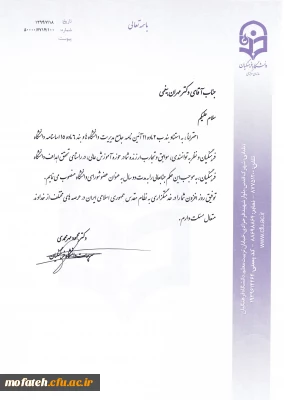 باسمه تعالی
تاریخ
شماره
پیوست
جناب آقای دکتر مهران
سلام علیکم
احتراماً به استناد بند ب ماده ۲۱ آئین نامه جامع مدیریت دانشگاه ها و بند ۶ ماده ۱۵ اساسنامه دانشگاه
فرهنگیان و نظر به توانمندی، سوابق و تجارب ارزنده شما در حوزه آموزش عالی، در راستای تحقق اهداف دانشگاه
فرهنگیان، به موجب این حکم جنابعالی را به مدت دو سال به عنوان عضو شورای دانشگاه منصوب می نمایم.
توفیق روز افزون شما را در خدمتگزاری به نظام مقدس جمهوری اسلامی ایران در عرصه های مختلف از خداوند
متعال مسئلت دارم.
دکتر محمود مهرمحمدی
mofateh.cfu.ac.ir